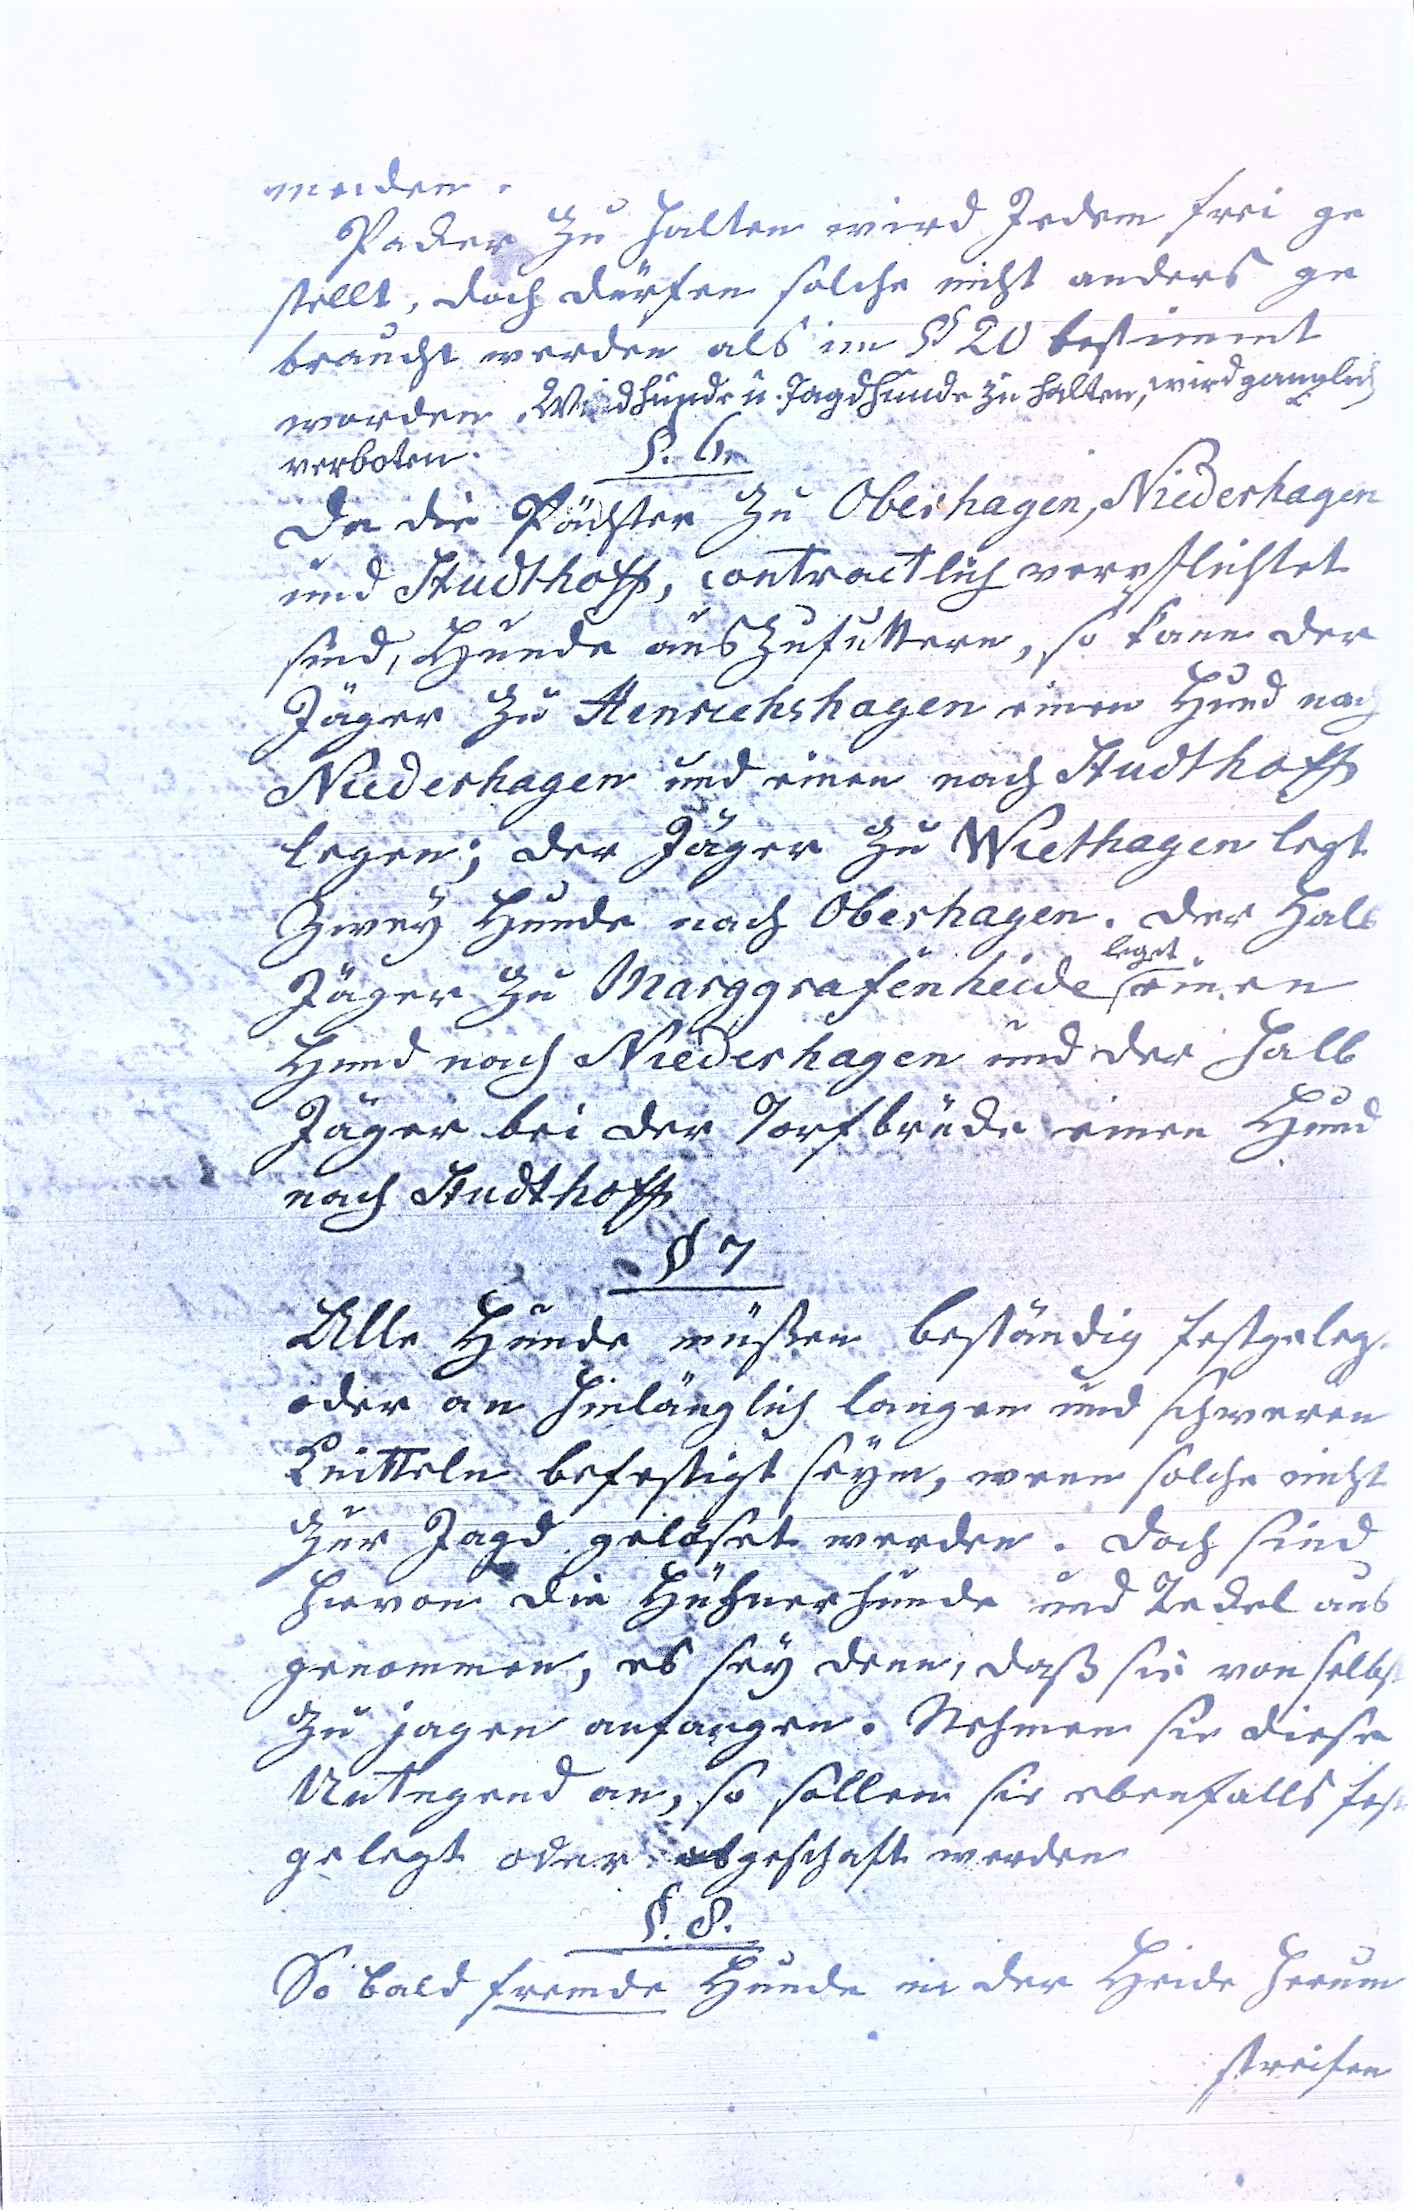 werden.
Packer zu halten wird Jedem frei ge
stellt, doch dürfen solche nicht anders ge
braucht werden als im § 20 bestimmt
worden. Windhunde u. Jagdhunde zu halten, wird gänzlich
verboten.
§. 6.
Da die Pächter zu Oberhagen, Niederhagen
und Studthoff, contractlich verpflichtet
sind, Hunde auszufuttern, so kann der
Jäger zu Henrichshagen einen Hund nach
Niederhagen und einen nach Studthoff
legen; der Jäger zu Wiethagen legt
zwey Hunde nach Oberhagen. Der Halb
leget
Jäger zu Marggrafenheide einen
Hund nach Niederhagen und der Halb
Jäger bei der Torfbrücke einen Hund
nach Studthoff
§ 7
Alle Hunde müßen beständig festgelegt
oder an hinlänglich langen und schweren
Knitteln befestigt seyn, wenn solche nicht
zur Jagd gelöset werden. Doch sind
hievon die Hühnerhunde und Teckel aus
genommen, es sey denn, daß sie von selbst
zu jagen anfangen. Nehmen sie diese
Untugend an, so sollen sie ebenfalls fest
gelegt oder abgeschaft werden
§. 8.
So bald fremde Hunde in der Heide herum
streifen